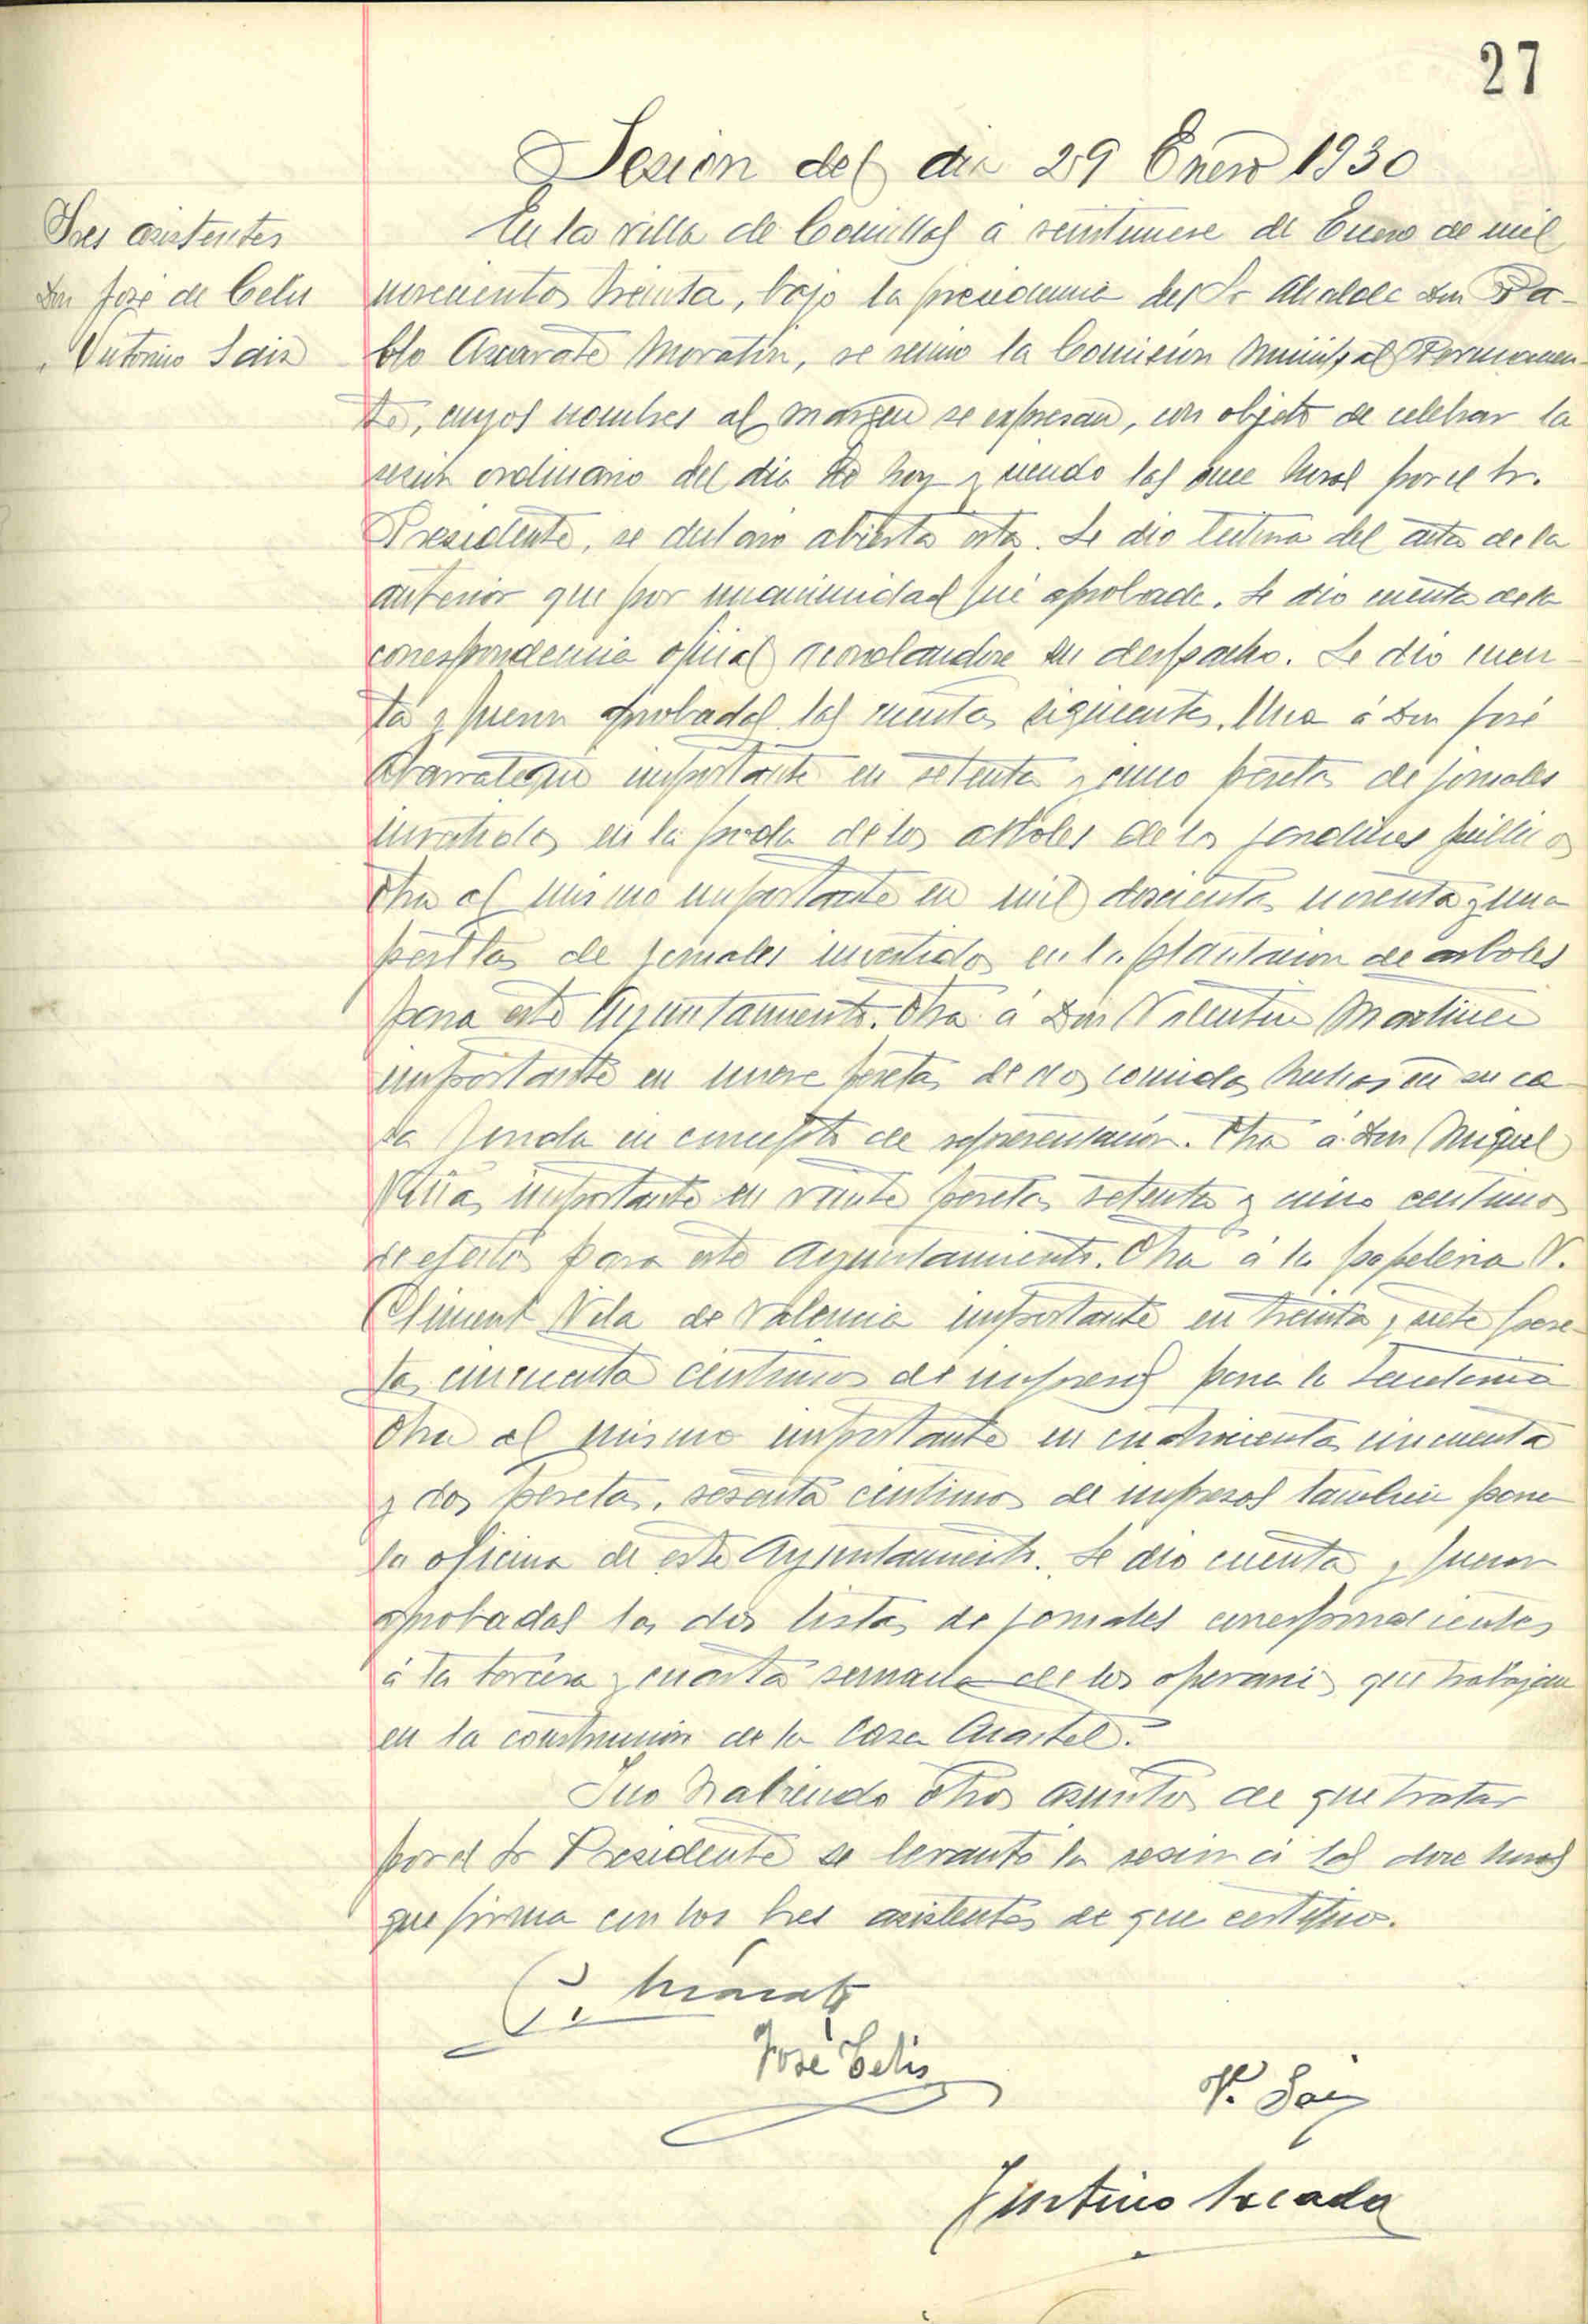 27
Sesión del dia 29 Enero 1930
Sres asistentes
Don José de Celis
" Antonio Saiz
En la villa de Comillas á veintinueve de Enero de mil
novecientos treinta, bajo la presidencia del Sr Alcalde Don Pa-
blo Azcarate Moratin, se reunio la Comisión Municipal Permanen-
te, cuyos nombres al margen se expresan, con objeto de celebrar la
sesión ordinaria del dia de hoy y siendo las once horas por el Sr.
Presidente, se declaro abierta esta. Se dio lectura del acta de la
anterior que por unanimidad fué aprobada. Se dio cuenta de la
correspondencia oficial acordandose su despacho. Se dio cuen-
ta y fueron aprobadas las cuentas siguientes. Una á Don José
importante en setenta y cinco pesetas de jornales
invertidos en la poda de los arboles de los jardines publicos
Otra al mismo importante en mil doscientas noventa y una
pesetas de jornales invertidos en la plantacion de arboles
para este Ayuntamiento. Otra á Don Valentin Martinez
importante en nueve pesetas de dos comidas hechas en su ca-
sa fonda en concepto de representación. Otra á Don Miguel
importante en veinte pesetas setenta y cinco centimos
de efectos para este Ayuntamiento. Otra á la papeleria V.
Climent Vila de Valencia importante en treinta y siete pese-
tas cincuenta centimos de impresos para la
Otra al mismo importante en cuatrocientas cincuenta
y dos pesetas, sesenta centimos de impresos tambien para
la oficina de este Ayuntamiento. Se dio cuenta y fueron
aprobadas las dos listas de jornales correspondientes
á la tercera y cuarta semana de los operarios que trabajan
en la construccion de la Casa Cuartel.
Y no habiendo otros asuntos de que tratar
por el Sr Presidente se levantó la sesion á las doce horas
que firma con los Sres asistentes de que certifico.
José Celis
A. Saiz